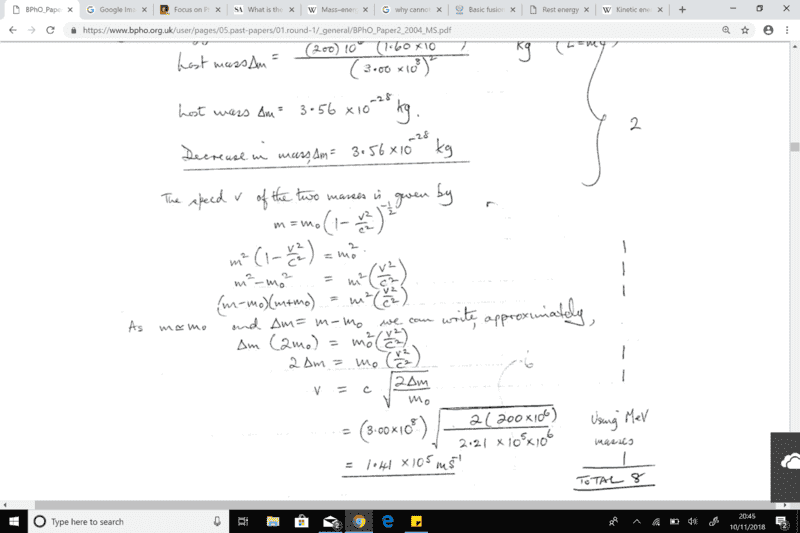 BPhO_Pape
Google Ima
Focus on Pl
What is the
Mass–ener
why cannot
Basic fusion
Rest energy
Kinetic ene
https://www.bpho.org.uk/user/pages/05.past-papers/01.round-1/_general/BPhO_Paper2_2004_MS.pdf
Lost mass Δm = (200) 10⁶ (1.60 × 10 ) / (3.00 × 10⁸)² kg
Lost mass Δm = 3.56 × 10⁻²⁸ kg.
Decrease in mass, Δm = 3.56 × 10⁻²⁸ kg
2
The speed v of the two masses is given by
m = m₀ (1 − v²/c²)^(-1/2)
m² (1 − v²/c²) = m₀² 1
m² − m₀² = m² (v²/c²) 1
(m − m₀)(m + m₀) = m² (v²/c²) 1
As m ≃ m₀ and Δm = m − m₀ we can write, approximately,
Δm (2m₀) = m₀² (v²/c²)
2Δm = m₀ (v²/c²) 1
v = c √(2Δm/m₀) 1
= (3.00 × 10⁸) √(2(200 × 10⁶) / 2.21 × 10⁵ × 10⁶) Using MeV masses
= 1.41 × 10⁵ ms⁻¹ 1
TOTAL 8
Type here to search
20:45
10/11/2018
2